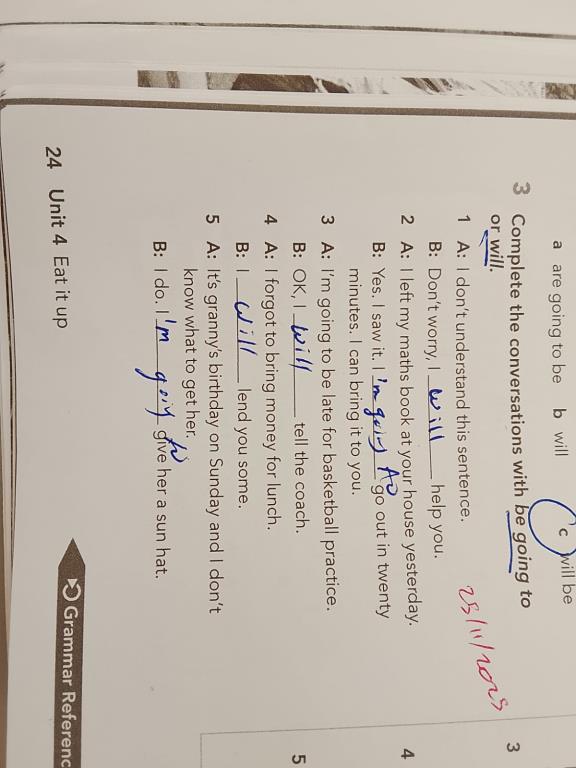 a are going to be b will c will be
3 Complete the conversations with be going to
or will.
1 A: I don't understand this sentence.
B: Don't worry, I will help you.
2 A: I left my maths book at your house yesterday.
B: Yes. I saw it. I 'm going to go out in twenty
minutes. I can bring it to you.
3 A: I'm going to be late for basketball practice.
B: OK, I will tell the coach.
4 A: I forgot to bring money for lunch.
B: I will lend you some.
5 A: It's granny's birthday on Sunday and I don't
know what to get her.
B: I do. I 'm going to give her a sun hat.
24 Unit 4 Eat it up
Grammar Referenc
3
4
5